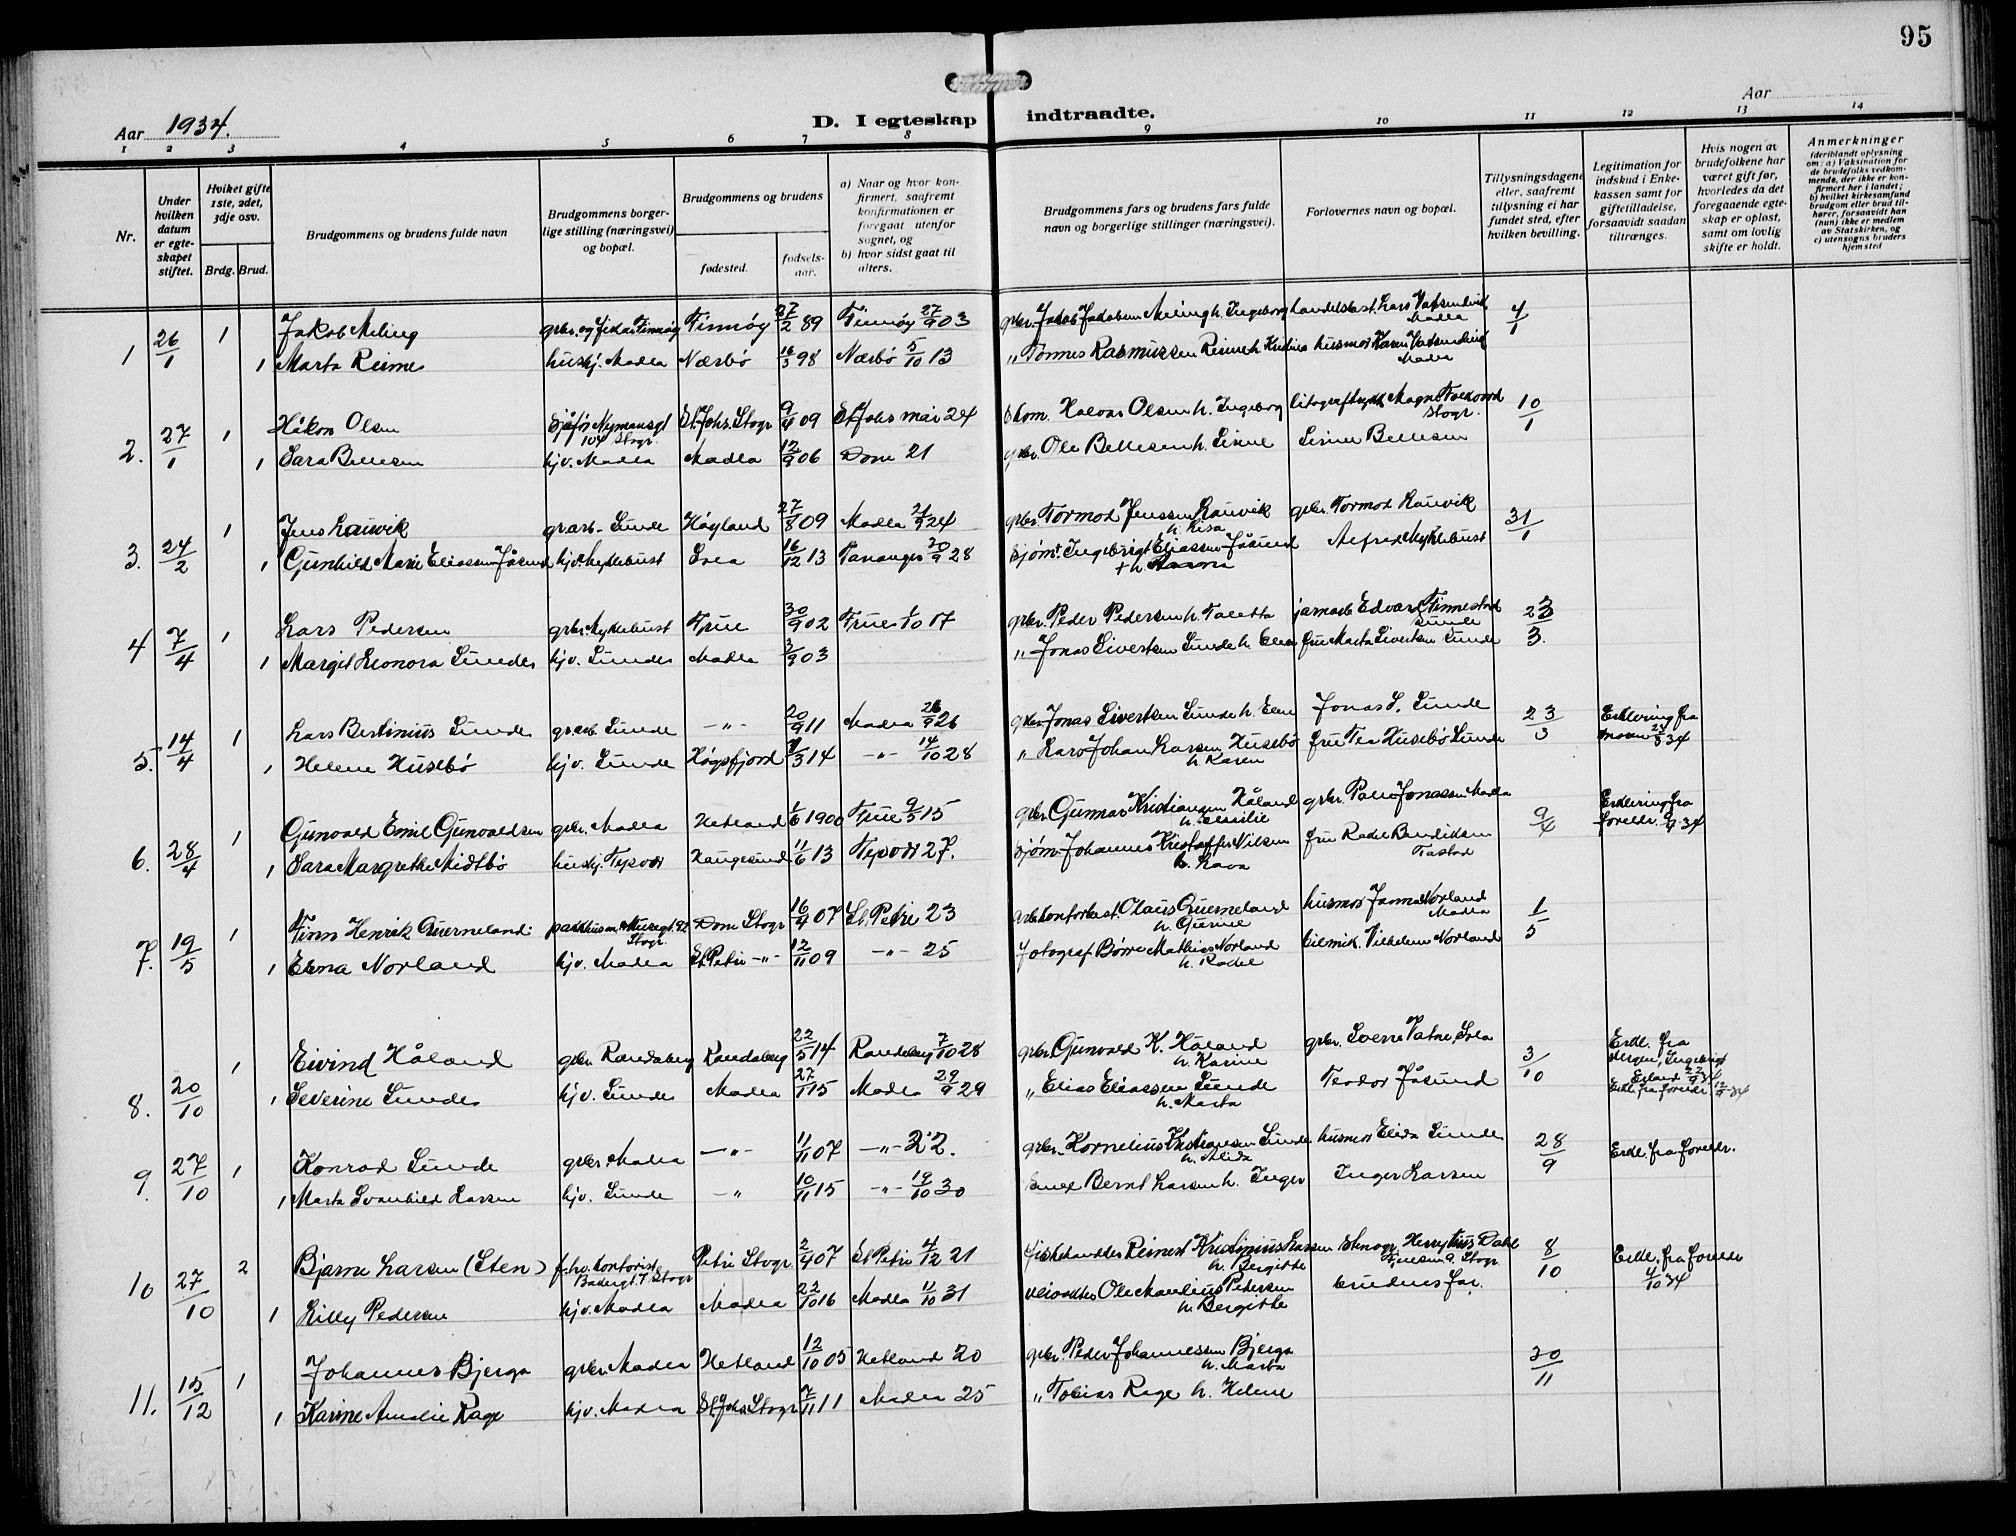 95
Aar 1934.
D. I egteskap indtraadte.
Aar
1 2 3 4 5 6 7 8 9 10 11 12 13 14
Nr.
Under hvilken datum er egteskapet stiftet.
Hviket gifte 1ste, 2det, 3dje osv.
Brdg. Brud.
Brudgommens og brudens fulde navn
Brudgommens borgerlige stilling (næringsvei) og bopæl.
Brudgommens og brudens
fødested.
fødselsaar.
a) Naar og hvor konfirmert, saafremt konfirmationen er foregaat utenfor sognet, og
b) hvor sidst gaat til alters.
Brudgommens fars og brudens fars fulde navn og borgerlige stillinger (næringsvei).
Forlovernes navn og bopæl.
Tillysningsdagene eller, saafremt tillysning ei har fundet sted, efter hvilken bevilling.
Legitimation for indskud i Enkekassen samt for giftetilladelse, forsaavidt saadan tiltrænges.
Hvis nogen av brudefolkene har været gift før, hvorledes da det foregaaende egteskap er opløst, samt om lovlig skifte er holdt.
Anmerkninger (deriblandt oplysning om: a) Vaksination for de brudefolks vedkommende, der ikke er konfirmert her i landet; b) hvilket kirkesamfund brudgom eller brud tilhører, forsaavidt han (hun) ikke er medlem av Statskirken, og c) utensogns bruders hjemsted
1 26/1 1 Jakob Meling grbr. og fisker Finnøy Finnøy 27/2 89 Finnøy 27/9 03 grbr. Jakob Jakobsen Meling h. Ingeborg handelsbest. Lars Vatsendvik Madla 4/1
1 Marta Reime hushj. Madla Nærbø 16/3 98 Nærbø 5/10 13 " Tønnes Rasmussen Reime h. Kristine husmor Karen Vatsendvik Madla
2. 27/1 1 Håkon Olsen sjåfør Nymansgt 104 Stvgr St. Johs. Stvgr 9/4 09 St Johs mai 24 Halvor Olsen h. Ingeborg Stvgr. 10/1
1 Sara Bellesen hjv. Madla Madla 12/9 06 Dom 21 grbr. Ole Bellesen h. Sirine Sirine Bellesen
3. 24/2 1 Jens Lauvik grarb. Sunde Høyland 27/8 09 Madla 21/9 24 grbr. Tormod Jenssen Lauvik h. Lisa grbr. Tormod Lauvik 31/1
1 Gunhild Marie Eliassen Jåsund hjv. Myklebust Sola 16/12 13 Tananger 30/9 28 sjøm. Ingebrigt Eliassen Jåsund Alfred Myklebust
4 7/4 1 Lars Pedersen grbr. Myklebust Tjue 30/9 02 Tjue 1/10 17 grbr. Peder Pedersen h. Taletta jernarb Edvard Finnestad Sunde 23/3.
1 Margit Leonora Sunde hjv. Sunde Madla 3/9 03 " Jonas Sivertsen Sunde h. Elen fru Marta Sivertsen Sunde
5. 14/4 1 Lars Bertinius Sunde grarb. Sunde -"- 20/9 11 Madla 26/9 26 grbr. Jonas Sivertsen Sunde h. Elen Jonas S. Sunde 23/3 Erklæring fra moren 24/3 34
1 Helene Husebø hjv. Sunde Høgsfjord 4/3 14 -"- 14/10 28 " Lars Johan Larsen Husebø h. Karen fru Tea Husebø Sunde
6. 28/4 1 Gunvald Emil Gunvaldsen grbr. Madla Hetland 1/6 1900 Tjue 9/5 15 grbr. Gunnar Kristiansen Håland h. Emilie grbr. Jonassen Madla 9/4 Erklæring fra foreldr. 9/4 34
1 Sara Margrethe Midtbø hushj. Tysvær Haugesund 11/6 13 Tysvær 27. sjøm. Johannes Kristoffer Nilsen h. Lava fru Rakel Bendiksen Tastad
7. 19/5 1 Finn Henrik Querneland pakkhusm. Musegt. 92 Stvgr. Dom Stvgr 16/4 07 St. Petri 23 kontorbest. Olaus Querneland h. Gurine husmor Norland Madla 1/5
1 Elna Norland hjv. Madla St. Petri -"- 12/11 09 -"- 25 fotograf. Børre Mathias Norland h. Rakel bilmek. Vilhelm Norland
8. 20/10 1 Eivind Håland grbr. Randaberg Randaberg 22/5 14 Randaberg 7/10 28 grbr. Gunvald K. Håland h. Karine grbr. Sverre Vatne, Sola 3/10 Erkl. fra vergen, Ingebrigt Erland 22/9 34
1 Severine Sunde hjv. Sunde Madla 27/1 15 Madla 29/9 29 " Elias Eliassen Sunde h. Marta Teodor Jåsund Erkl. fra foreldr. 12/9 34
9. 27/10 1 Konrad Sunde grbr. Madla -"- 11/11 07 -"- 22. grbr. Kornelius Kristiansen Sunde h. Alida husmor Elida Sunde 28/9 Erkl. fra foreldr.
1 Marta Svanhild Larsen hjv. Sunde -" 10/11 15 -"- 19/10 30 Bernt Larsen h. Inger Inger Larsen
10 27/10 2 Bjarne Larsen (Sten) f.hv. kontorist Badergt. 7 Stvgr Petri Stvgr 2/4 07 St Petri 4/12 21 fiskehandler Reinert Kristinius Larsen h. Bergitte Stenogr. Dahl Stvgr. 8/10 Erkl. fra foreldr 4/10 34
1 Lilly Pedersen hjv. Madla Madla 22/10 16 Madla 11/10 31 veivokter Ole Maulius Pedersen h. Bergitte brudens far.
11. 15/12 1 Johannes Bjerga grbr. Madla Hetland 12/10 05 Hetland 20 grbr. Peder Johannessen Bjerga h. Marta 30/11
1 Karine Amalie Rage hjv. Madla St. Johs Stvgr 7/11 11 Madla 25 " Tobias Rage h. Helene